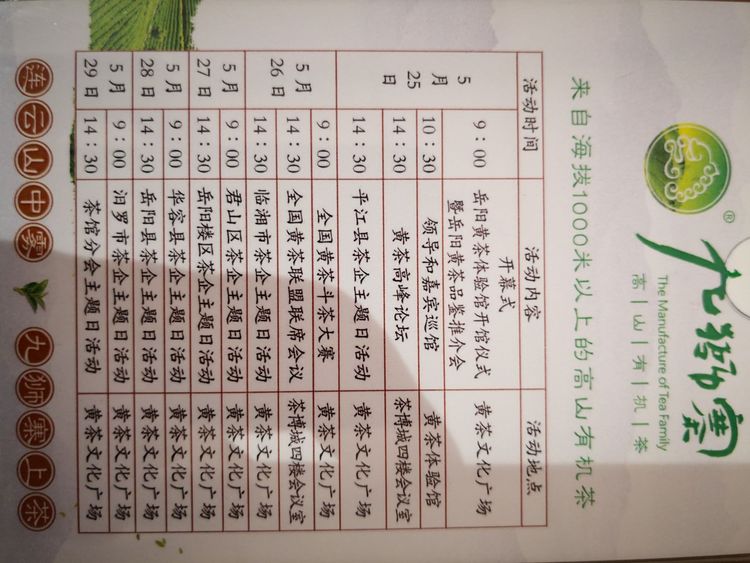 九狮寨
®
The Manufacture of Tea Family
高|山|有|机|茶
来自海拔1000米以上的高山有机茶
活动时间 活动内容 活动地点
5月25日 9:00 开幕式
岳阳黄茶体验馆开馆仪式
暨岳阳黄茶品鉴推介会 黄茶文化广场
10:30 领导和嘉宾巡馆 黄茶体验馆
14:30 黄茶高峰论坛 茶博城四楼会议室
14:30 平江县茶企主题日活动 黄茶文化广场
5月26日 9:00 全国黄茶斗茶大赛 黄茶文化广场
14:30 全国黄茶联盟联席会议 茶博城四楼会议室
14:30 临湘市茶企主题日活动 黄茶文化广场
5月27日 9:00 君山区茶企主题日活动 黄茶文化广场
14:30 岳阳楼区茶企主题日活动 黄茶文化广场
5月28日 9:00 华容县茶企主题日活动 黄茶文化广场
14:30 岳阳县茶企主题日活动 黄茶文化广场
5月29日 9:00 汨罗市茶企主题日活动 黄茶文化广场
14:30 茶馆分会主题日活动 黄茶文化广场
连云山中雾 九狮寨上茶